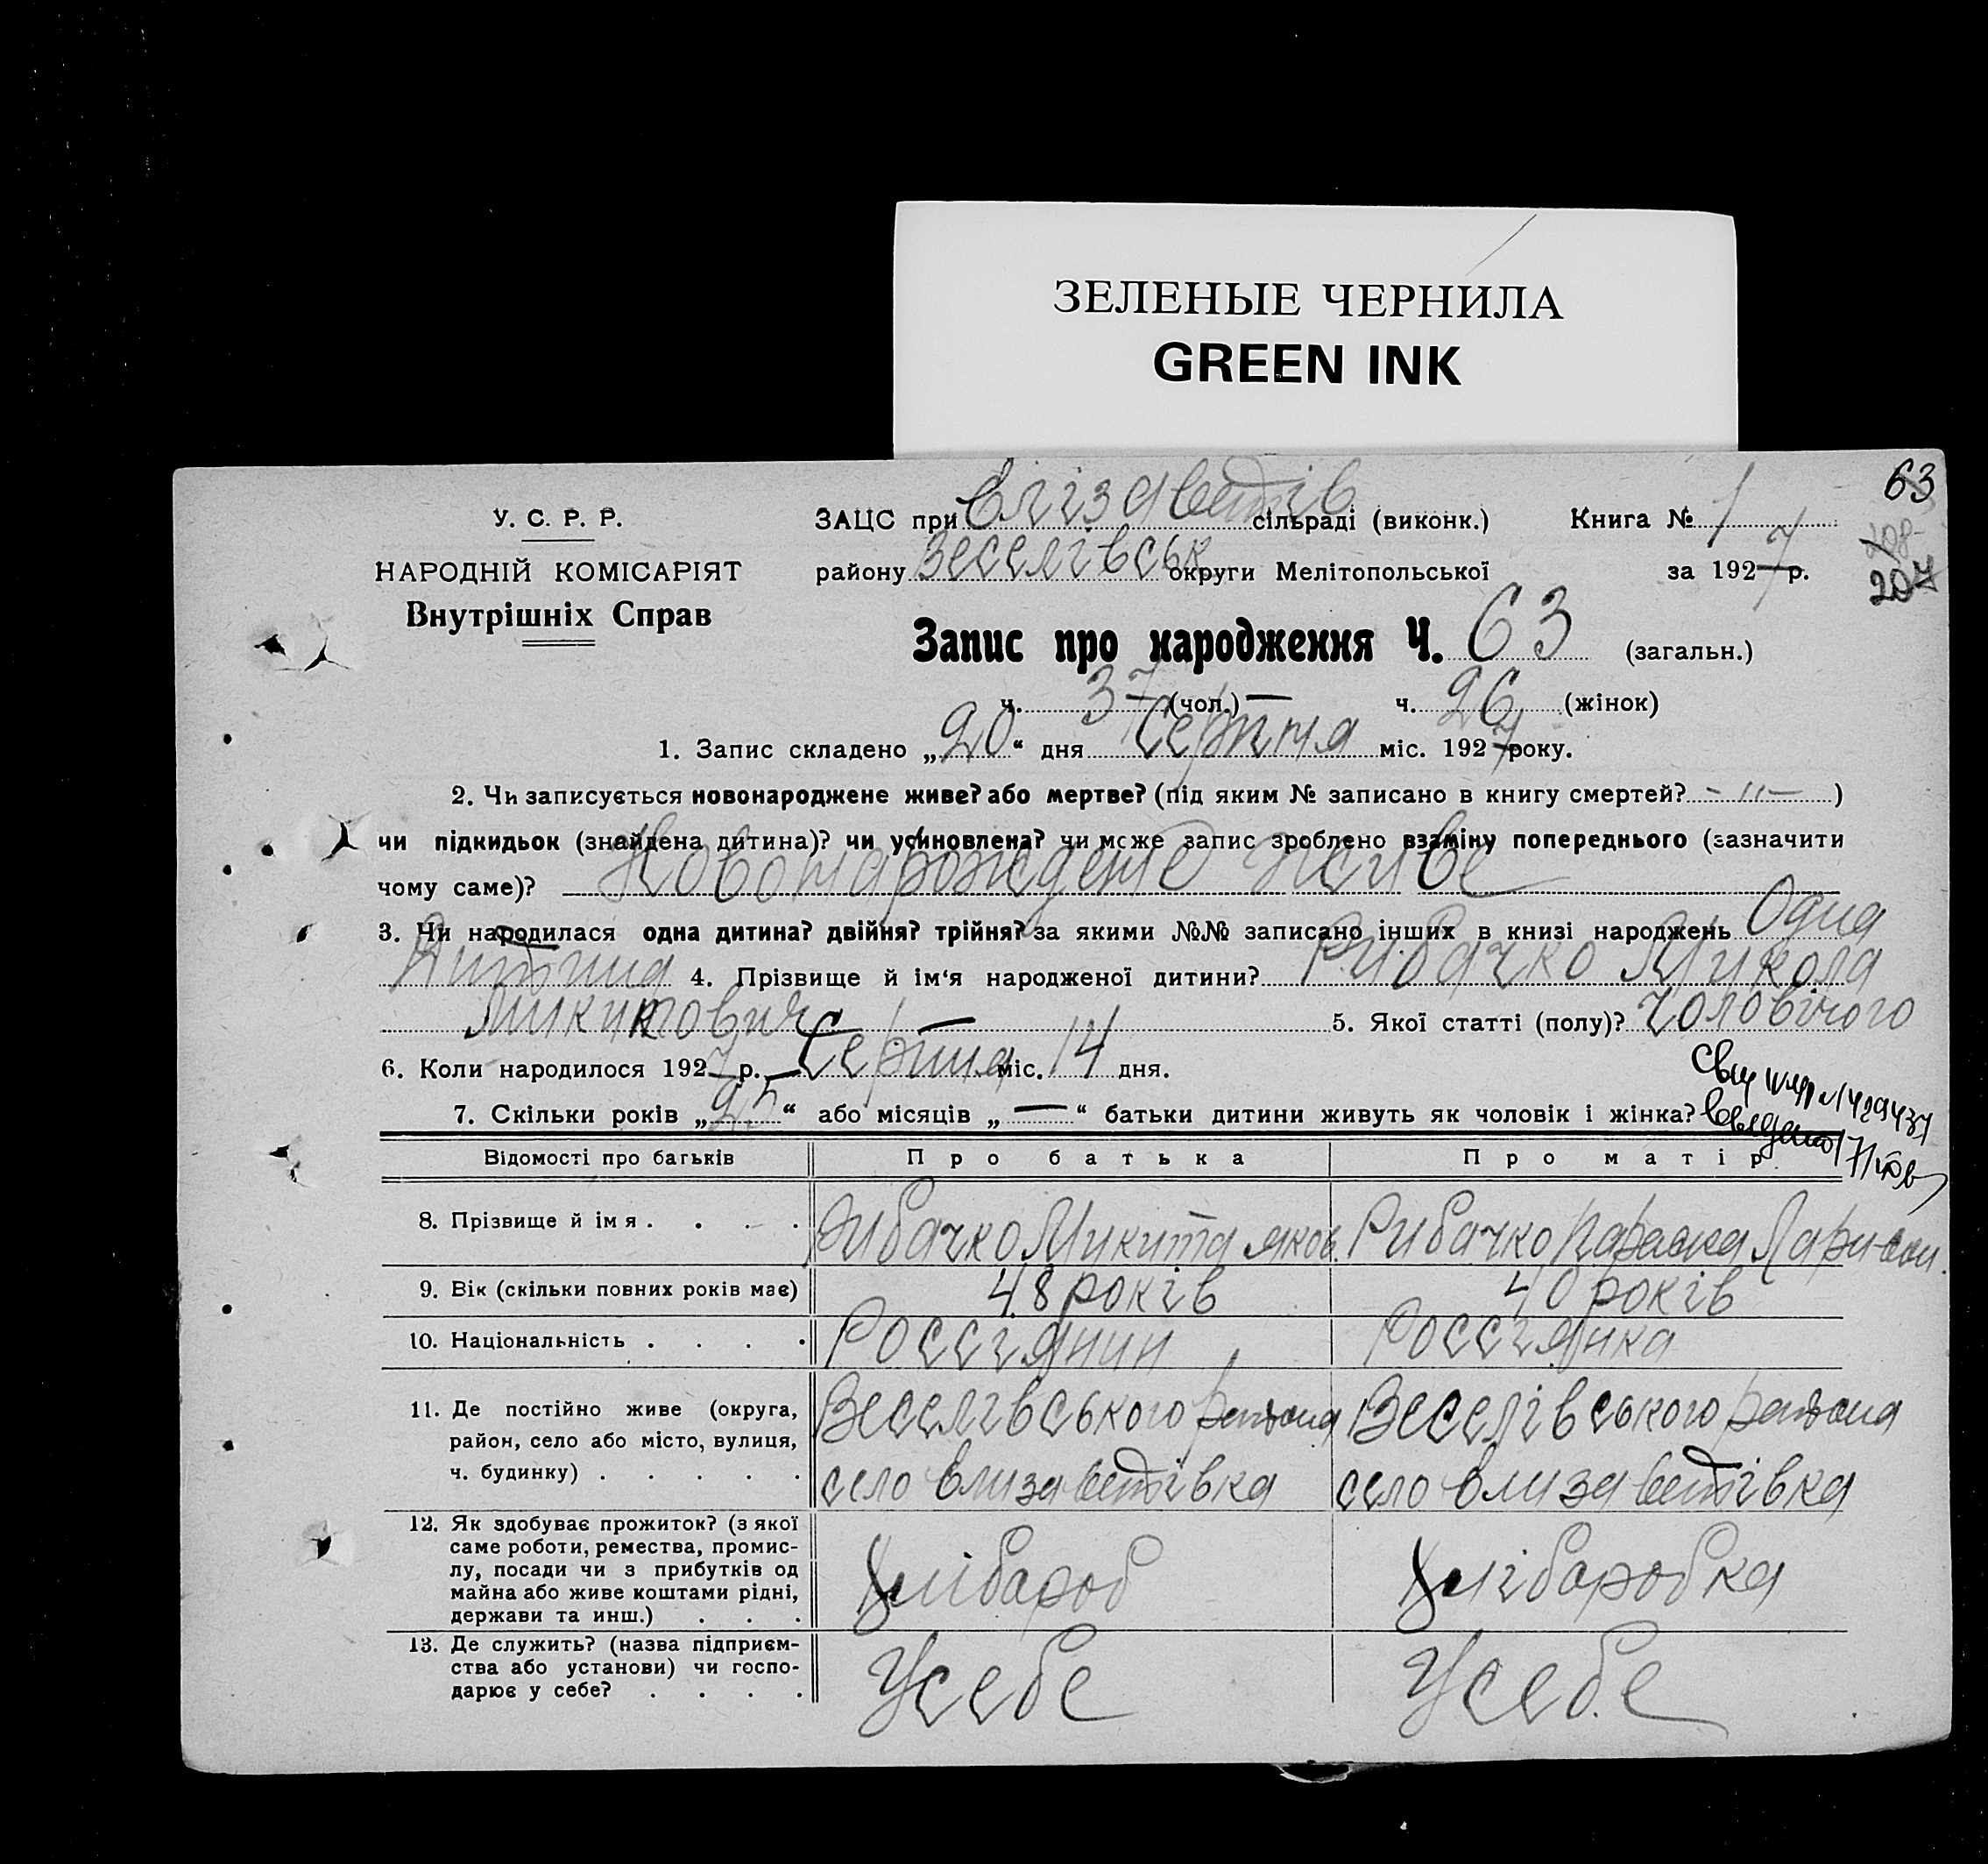 ЗЕЛЕНЫЕ ЧЕРНИЛА
GREEN INK
63
У. С. Р. Р.
ЗАЦС при Єлізаветів сільраді (виконк.) Книга № 1
НАРОДНІЙ КОМІСАРІЯТ
району Веселівськ округи Мелітопольської за 1927 р.
208
207
Внутрішніх Справ
Запис про народження Ч. 63 (загальн.)
ч. 37 (чол.) — ч. 26 (жінок)
1. Запис складено „20“ дня Серпня міс. 1927 року.
2. Чи записується новонароджене живе? або мертве? (під яким № записано в книгу смертей? - " - )
чи підкидьок (знайдена дитина)? чи усиновлена? чи може запис зроблено взаміну попереднього (зазначити
чому саме)? Новонарождене живе
3. Чи народилася одна дитина? двійня? трійня? за якими №№ записано інших в книзі народжень Одна
Дитина 4. Прізвище й ім'я народженої дитини? Рибачко Микола
Микитович 5. Якої статті (полу)? Чоловічого
6. Коли народилося 1927 р. Серпня міс. 14 дня.
7. Скільки років „25“ або місяців „—“ батьки дитини живуть як чоловік і жінка?
Відомості про батьків Про батька Про матір
8. Прізвище й імя . . . . Рибачко Микита Яков. Рибачко Параска Ларион.
9. Вік (скільки повних років має) 48 років 40 років
10. Національність . . . . Россіянин Россіянка
11. Де постійно живе (округа, Веселівського району Веселівського району
район, село або місто, вулиця,
ч. будинку) . . . . . село Єлизаветівка село Єлизаветівка
12. Як здобуває прожиток? (з якої
саме роботи, ремества, промис-
лу, посади чи з прибутків од Хлібароб Хлібаробка
майна або живе коштами рідні,
держави та инш.) . . .
13. Де служить? (назва підприєм-
ства або установи) чи госпо- Усебе Усебе
дарює у себе? . . . .